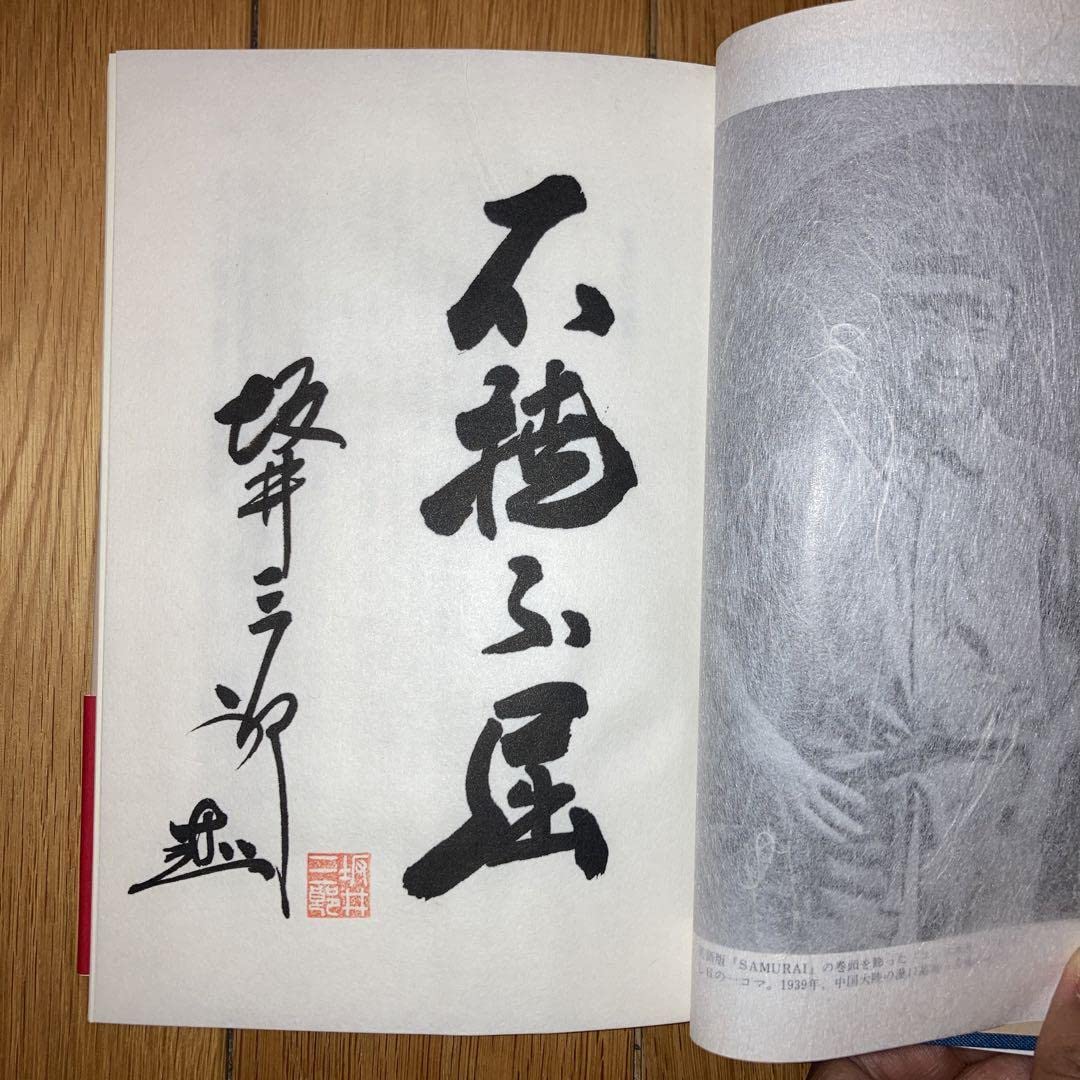 不撓不屈
坂井三郎
坂井三郎
『SAMURAI』の巻頭を飾った
一コマ。1939年、中国大陸の漢口基地